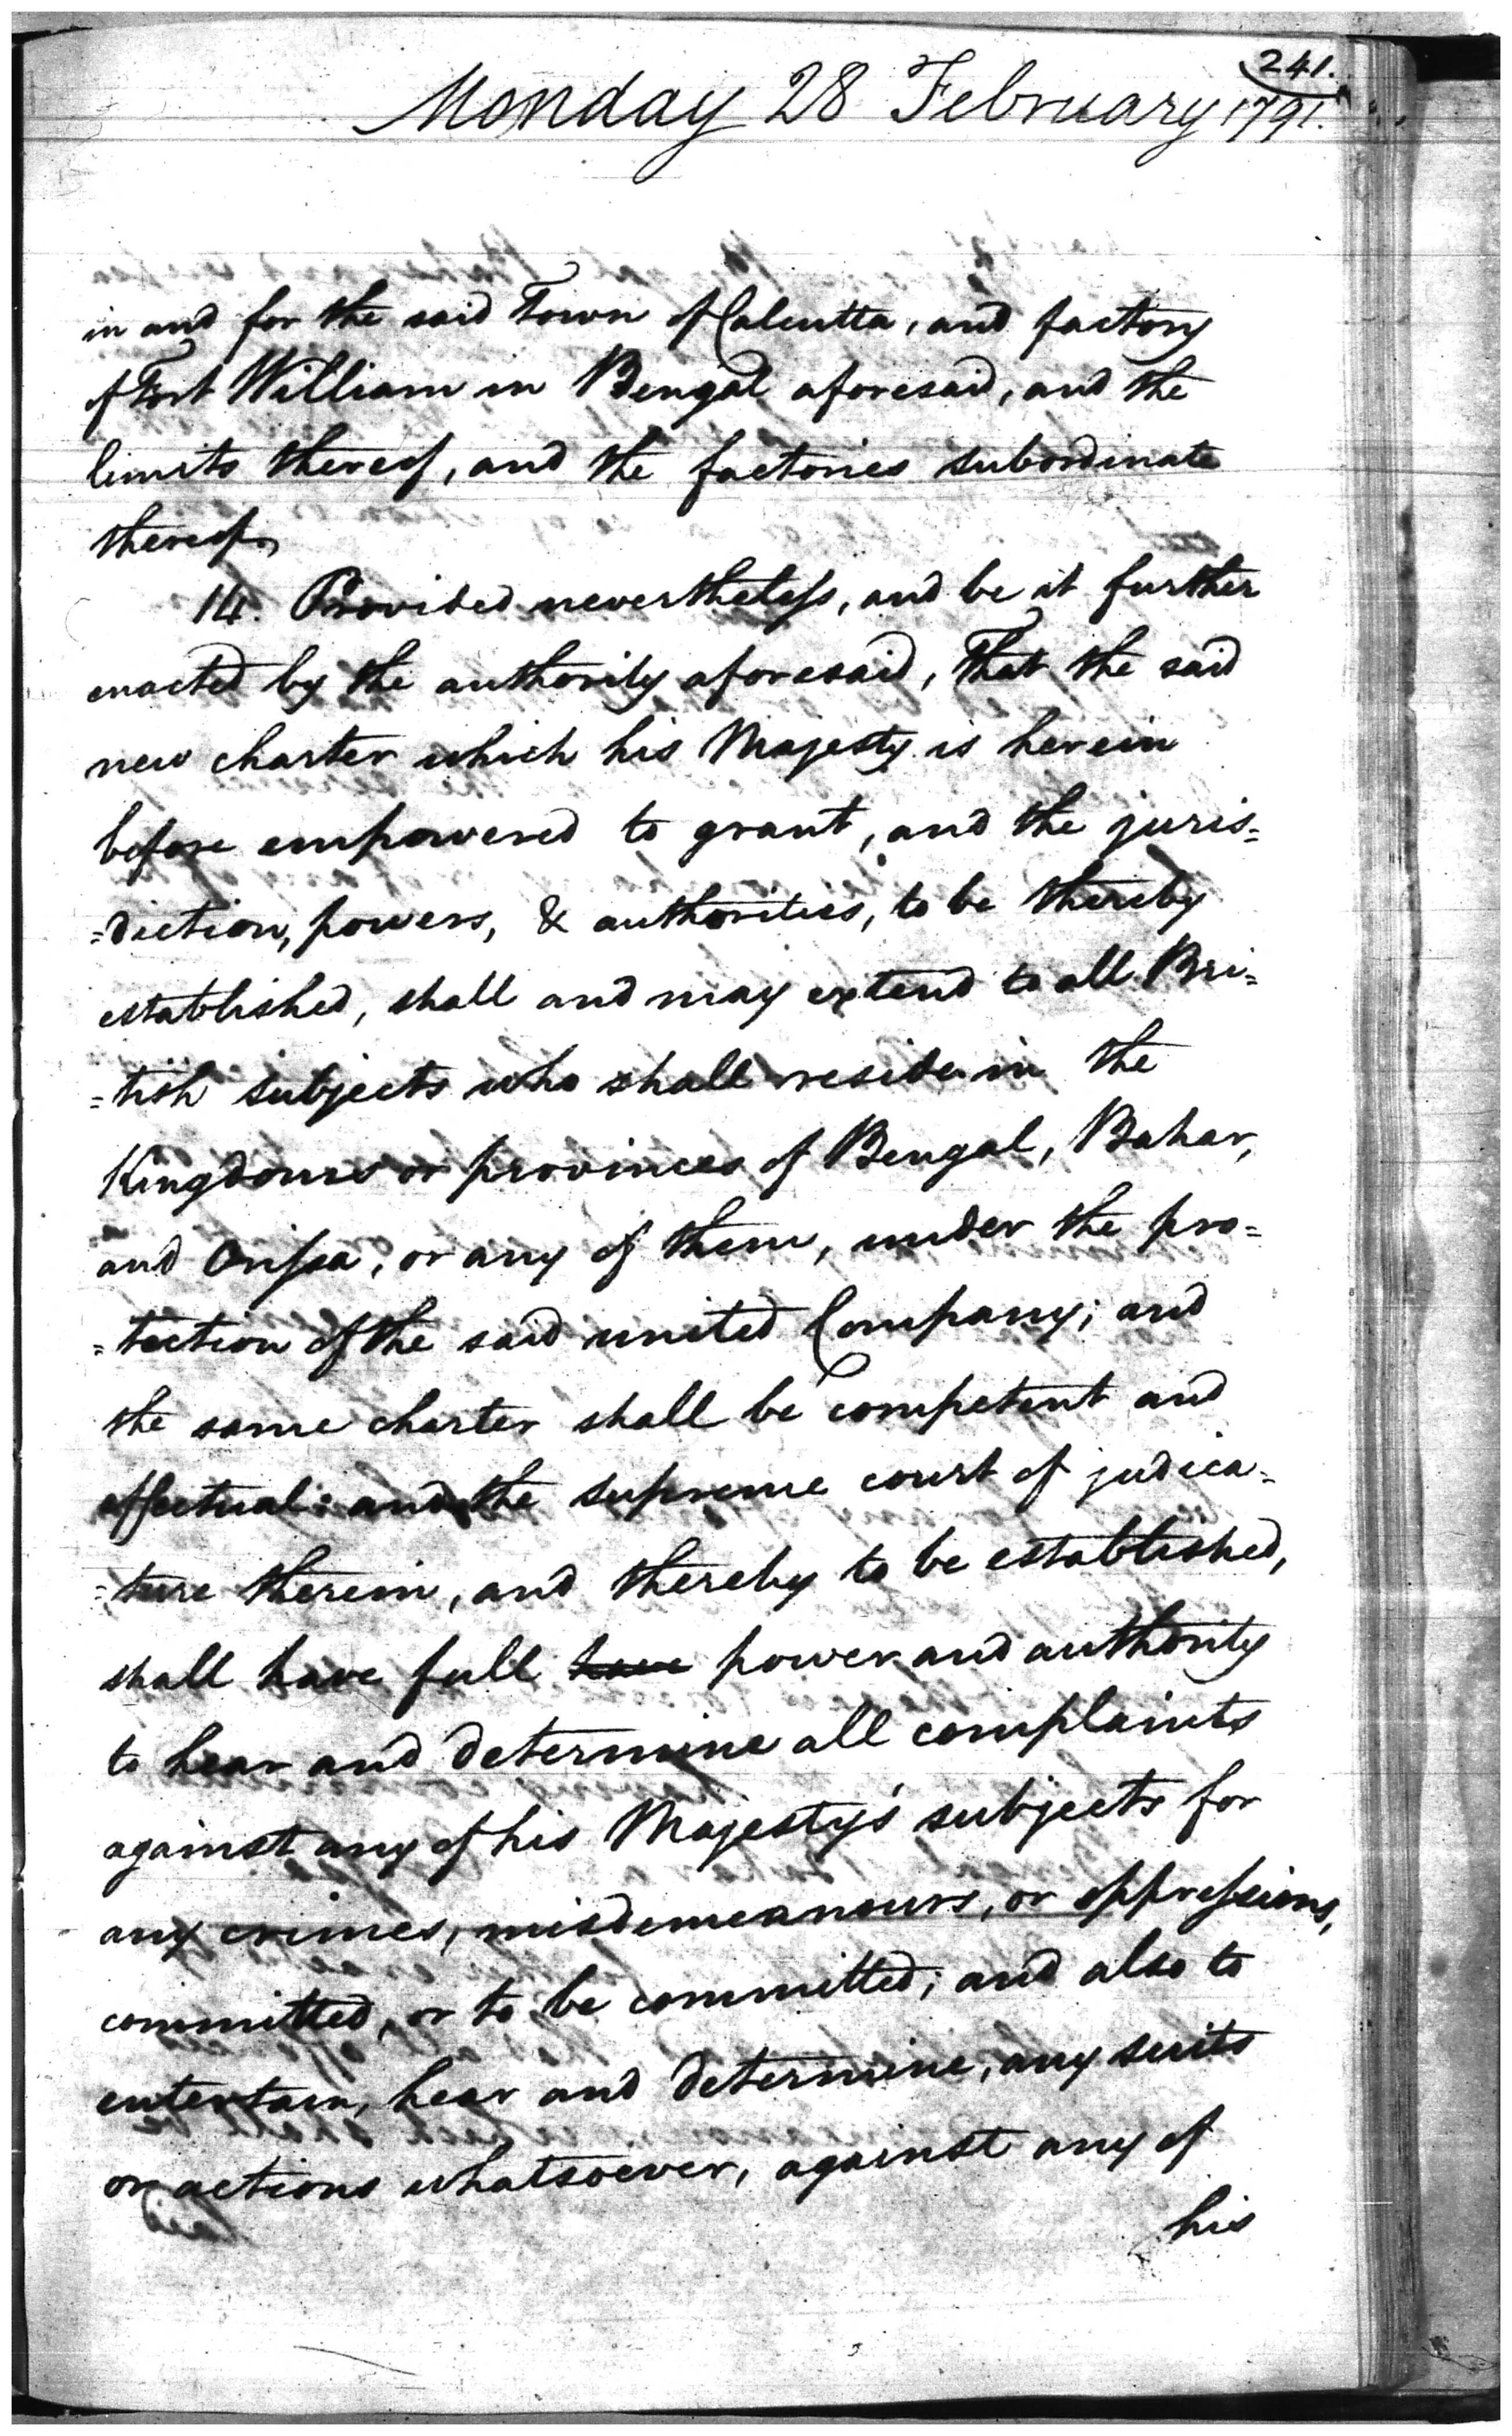 241.
Monday 28 February 1791.
in and for the said Town of Calcutta, and factory
of Fort William in Bengal aforesaid, and the
limits thereof, and the factories subordinate
thereof.
14. Provided nevertheless, and be it further
enacted by the authority aforesaid, That the said
new charter which his Majesty is herein
before empowered to grant, and the juris=
=diction, powers, & authorities, to be thereby
established, shall and may extend to all Bri=
=tish subjects who shall reside in the
Kingdoms or provinces of Bengal, Bahar,
and Orissa, or any of them, under the pro=
=tection of the said united Company; and
the same charter shall be competent and
effectual: and the supreme court of judica=
=ture therein, and thereby to be established,
shall have full have power and authority
to hear and determine all complaints
against any of his Majesty's subjects for
any crimes, misdemeanours, or oppressions,
committed, or to be committed; and also to
entertain, hear and determine, any suits
or actions whatsoever, against any of
his